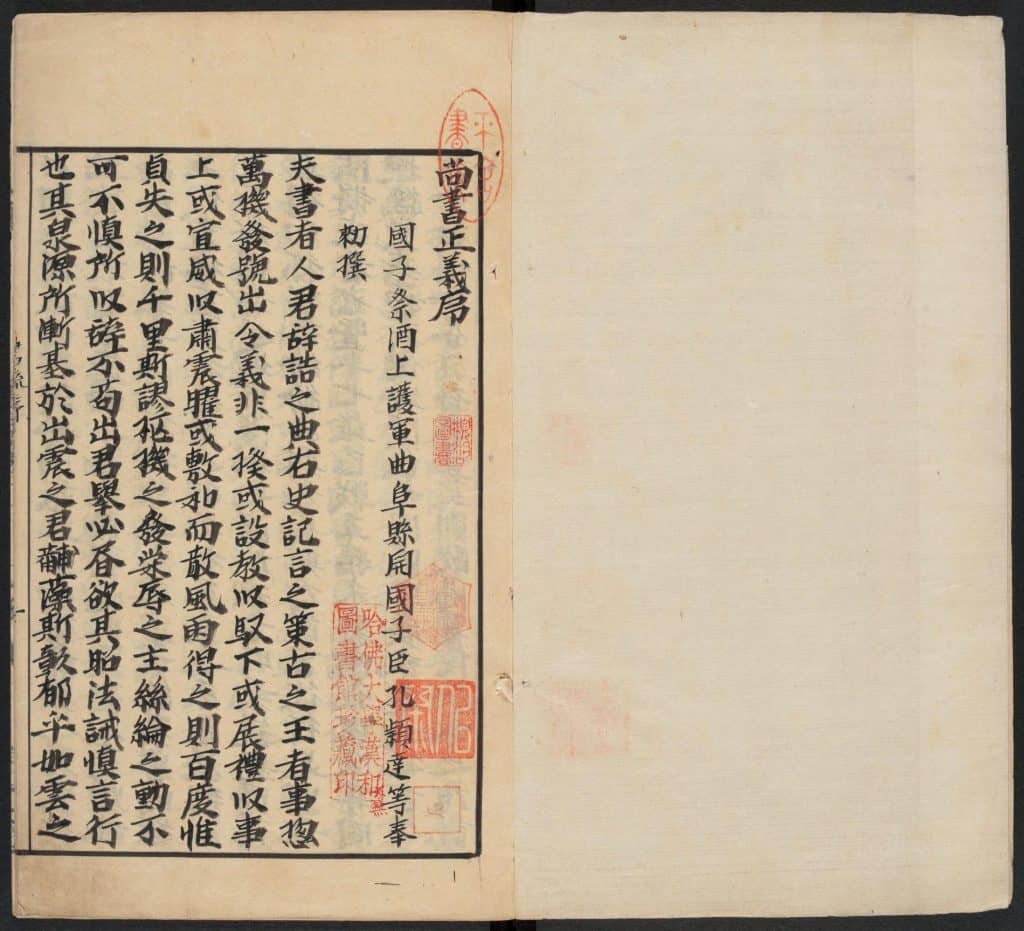 尚書正義序
國子祭酒上護軍曲阜縣開國子臣孔穎達等奉
勑撰
夫書者人君辞誥之典右史記言之策古之王者事惣
萬機發號出令義非一揆或設教以馭下或展禮以事
上或宣威以肅震曜或敷和而散風雨得之則百度惟
貞失之則千里斯謬樞機之發榮辱之主絲綸之動不
可不慎所以辞不苟出君舉必書欲其昭法誡慎言行
也其泉源所漸基於出震之君黼藻斯彰郁乎如雲之
哈佛大學漢和
圖書館珍藏印